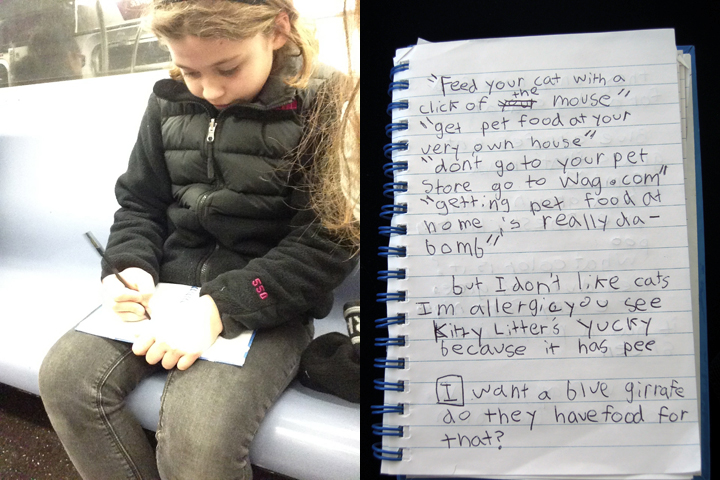 SSD
"Feed your cat with a
click of the mouse"
"get pet food at your
very own house"
"don't go to your pet
Store go to Wag.com"
"getting pet food at
home is really da-
bomb"
but I don't like cats
Im allergic you see
Kitty Litter's yucky
because it has pee
I want a blue girrafe
do they have food for
that?